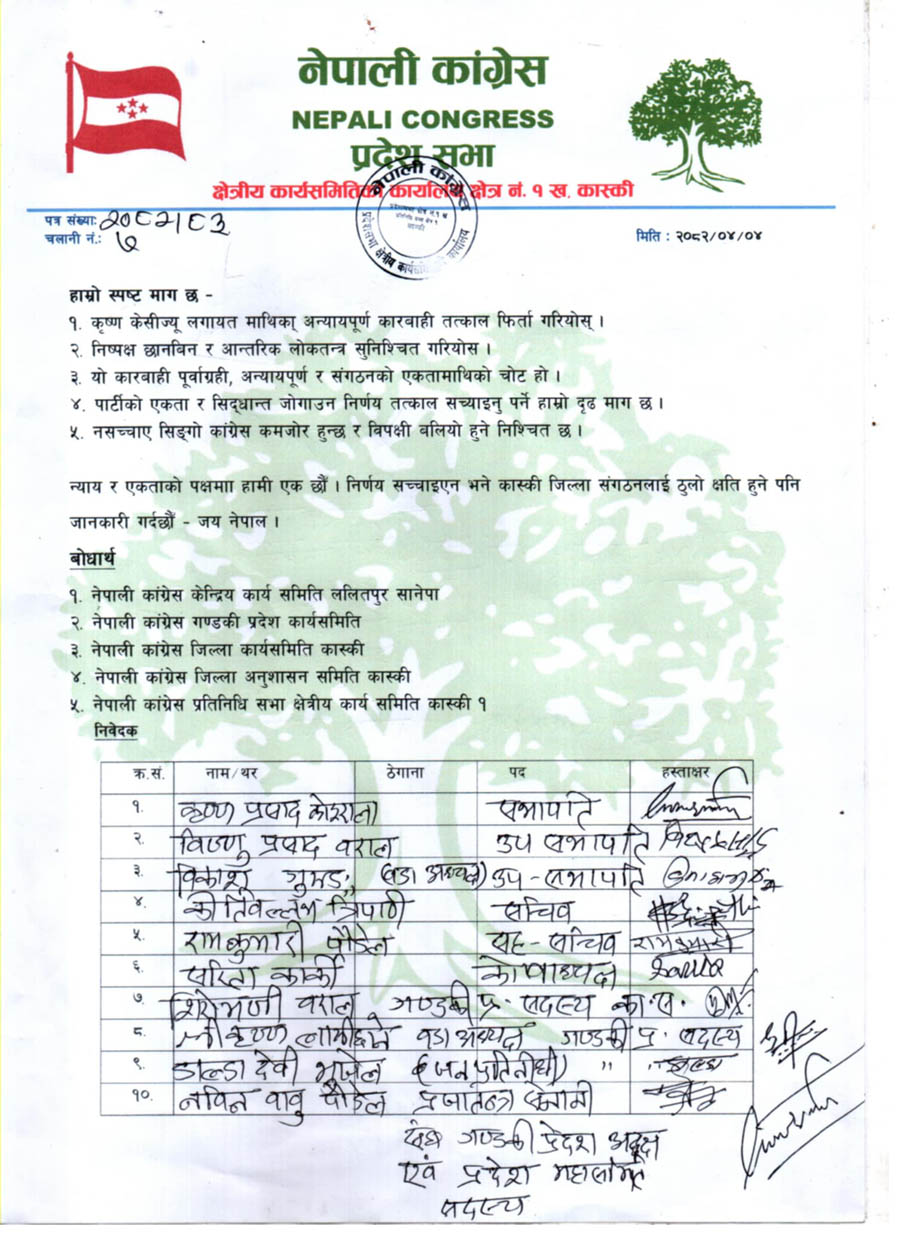 नेपाली कांग्रेस
NEPALI CONGRESS
प्रदेश सभा
क्षेत्रीय कार्यसमितिको कार्यालय क्षेत्र नं. १ ख, कास्की
नेपाली कांग्रेस
पत्र संख्या: २०८२/८३
चलानी नं.: ७
मिति : २०८२/०४/०४
हाम्रो स्पष्ट माग छ -
१. कृष्ण केसीज्यू लगायत माथिका अन्यायपूर्ण कारबाही तत्काल फिर्ता गरियोस् ।
२. निष्पक्ष छानबिन र आन्तरिक लोकतन्त्र सुनिश्चित गरियोस ।
३. यो कारबाही पूर्वाग्रही, अन्यायपूर्ण र संगठनको एकतामाथिको चोट हो ।
४. पार्टीको एकता र सिद्धान्त जोगाउन निर्णय तत्काल सच्याइनु पर्ने हाम्रो दृढ माग छ ।
५. नसच्चाए सिङ्गो कांग्रेस कमजोर हुन्छ र विपक्षी बलियो हुने निश्चित छ ।
न्याय र एकताको पक्षमाा हामी एक छौं । निर्णय सच्चाइएन भने कास्की जिल्ला संगठनलाई ठुलो क्षति हुने पनि
जानकारी गर्दछौं - जय नेपाल ।
बोधार्थ
१. नेपाली कांग्रेस केन्द्रिय कार्य समिति ललितपुर सानेपा
२. नेपाली कांग्रेस गण्डकी प्रदेश कार्यसमिति
३. नेपाली कांग्रेस जिल्ला कार्यसमिति कास्की
४. नेपाली कांग्रेस जिल्ला अनुशासन समिति कास्की
५. नेपाली कांग्रेस प्रतिनिधि सभा क्षेत्रीय कार्य समिति कास्की १
निवेदक
क्र.सं. नाम/थर ठेगाना पद हस्ताक्षर
१. कृष्ण प्रसाद कोइराला सभापति
२. विष्णु प्रसाद बराल उप सभापति
३. विकाश गुरुङ (वडा अध्यक्ष) उप-सभापति
४. कीर्तिवल्लभ त्रिपाठी सचिव
५. रामकुमारी पौडेल सह-सचिव रामकुमारी
६. सरिता कार्की कोषाध्यक्ष
७. शिरोमणी बराल गण्डकी प्र. सदस्य का.स.
८. श्रीकृष्ण लामीछाने वडा अध्यक्ष गण्डकी प्र. सदस्य
९. डाल्डा देवी भुजेल (जनप्रतिनिधी) "
१०. नविन बाबु पौडेल प्रजातन्त्र सेनानी
गण्डकी प्रदेश अध्यक्ष
एवं प्रदेश
सदस्य